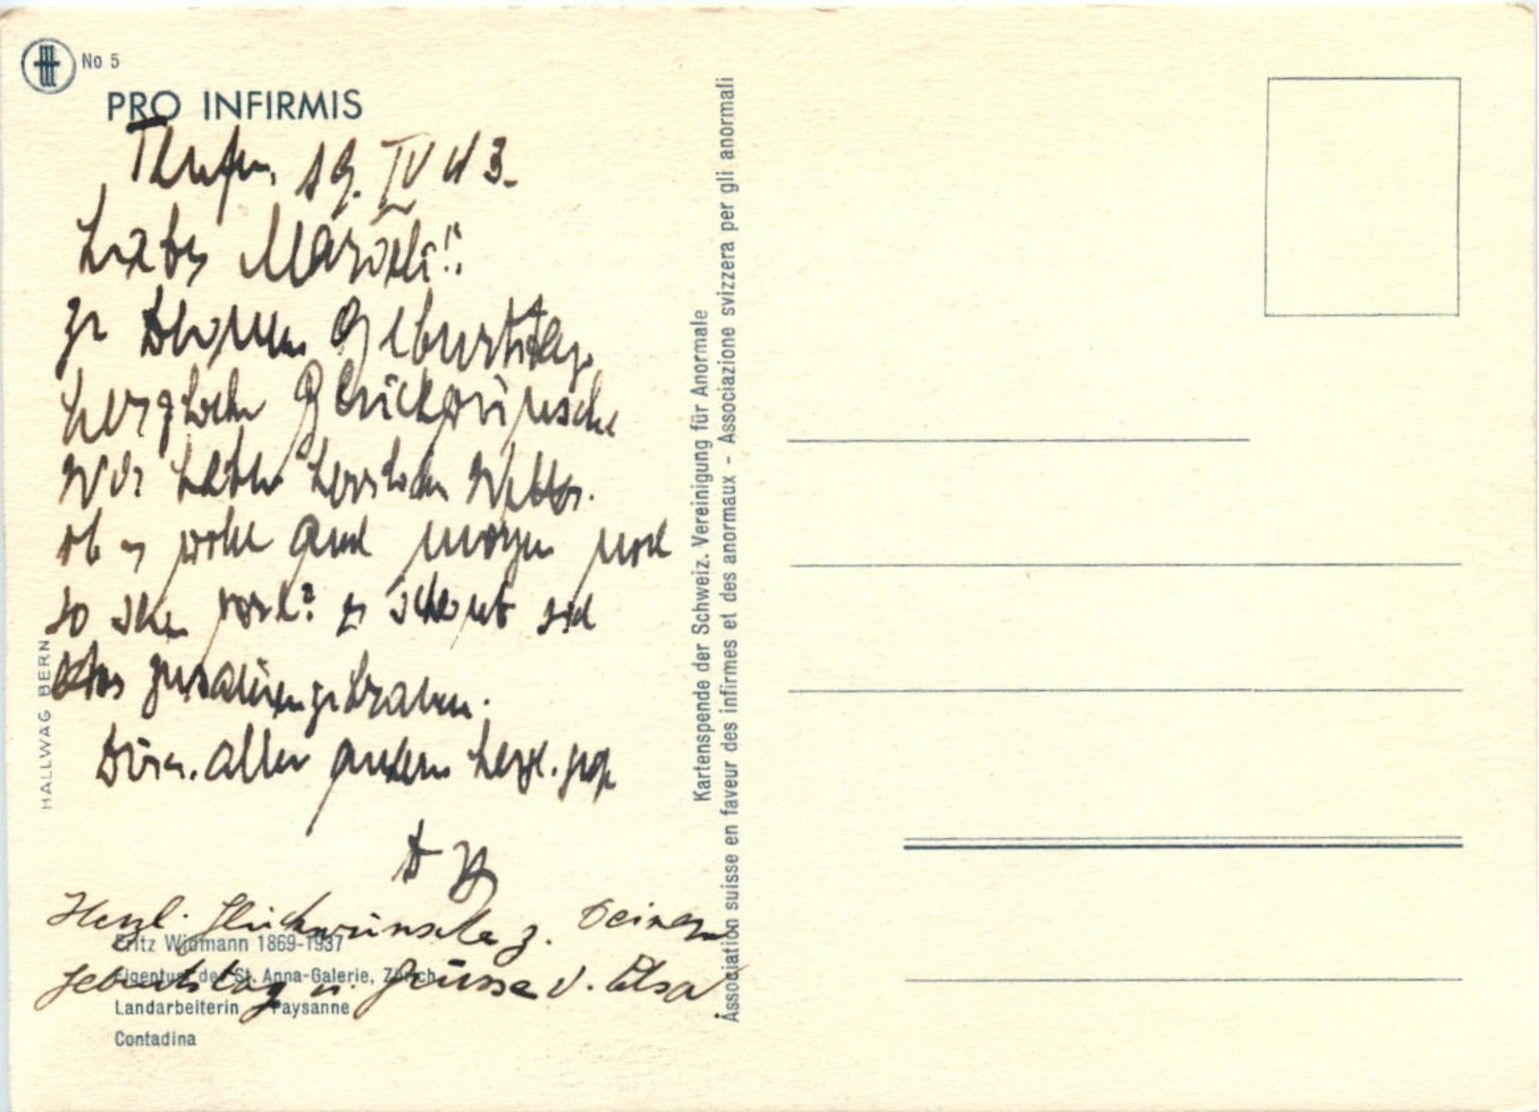 No 5
PRO INFIRMIS
19. IV 43.
Liebes
zu Deinem Geburtstage
herzliche Glückwünsche
Wir haben herrliches Wetter.
ob es wohl auch morgen noch
so es scheint sich
Dir u. allen andern herzl.
Herzl. Glückwünsche z. Deinem
Geburtstag u. Grüsse v. Elsa
Fritz Widmann 1869-1937
Eigentum der St. Anna-Galerie, Zürich
Landarbeiterin - Paysanne
Contadina
HALLWAG BERN
Kartenspende der Schweiz. Vereinigung für Anormale
Association suisse en faveur des infirmes et des anormaux - Associazione svizzera per gli anormali